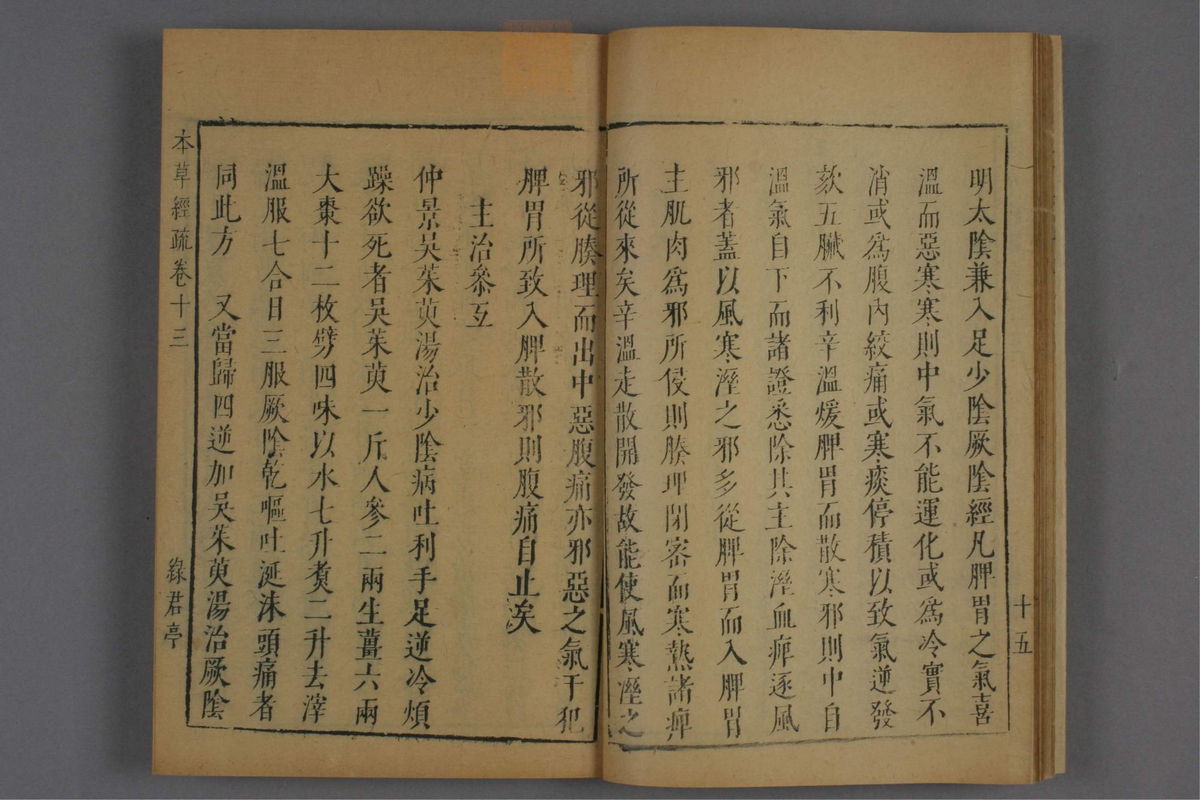 明太陰兼入足少陰厥陰經凡脾胃之氣喜
溫而惡寒寒則中氣不能運化或爲冷實不
消或爲腹內絞痛或寒痰停積以致氣逆發
欬五臟不利辛溫煖脾胃而散寒邪則中自
溫氣自下而諸證悉除其主除溼血痺逐風
邪者蓋以風寒溼之邪多從脾胃而入脾胃
主肌肉爲邪所侵則腠理閉密而寒熱諸痺
所從來矣辛溫走散開發故能使風寒溼之
十五
邪從腠理而出中惡腹痛亦邪惡之氣干犯
脾胃所致入脾散邪則腹痛自止矣
主治叅互
仲景吳茱萸湯治少陰病吐利手足逆冷煩
躁欲死者吳茱萸一斤人參二兩生薑六兩
大棗十二枚劈四味以水七升煑二升去滓
溫服七合日三服厥陰乾嘔吐涎沫頭痛者
同此方　又當歸四逆加吳茱萸湯治厥陰
本草經疏卷十三
綠君亭